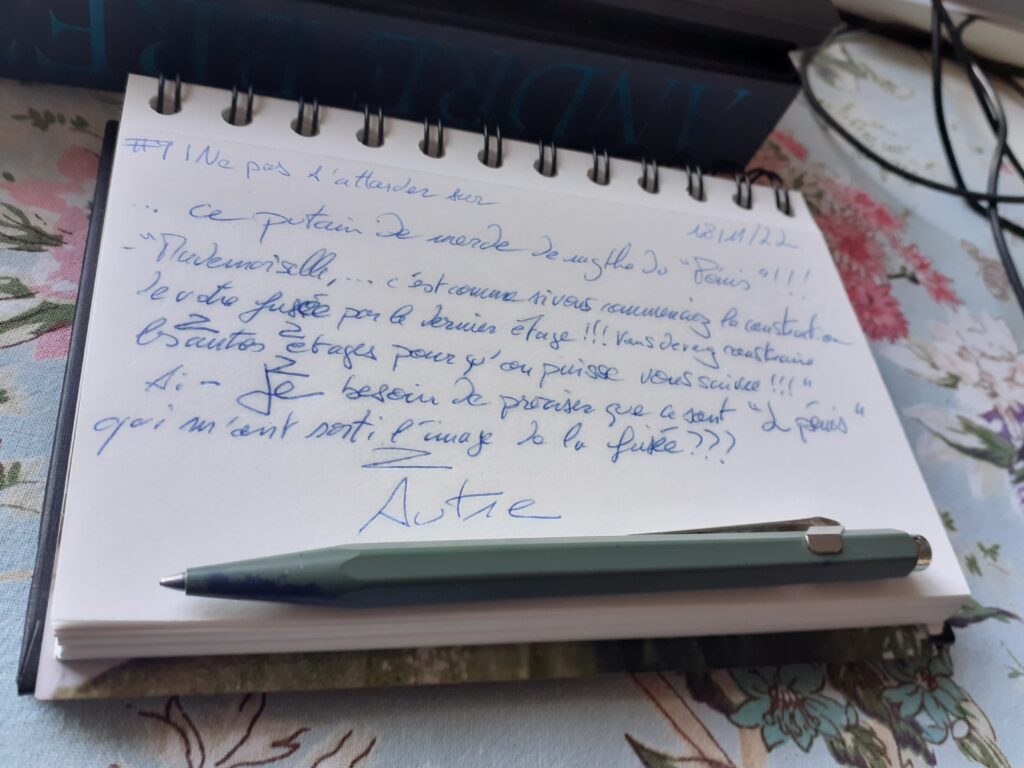 ANDRÉ BRE
#9 | Ne pas s'attarder sur
18/11/22
... ce putain de merde de mythe du "Pénis"!!!
- "Mademoiselle, ... c'est comme si vous commenciez la construction
de votre fusée par le dernier étage!!! Vous devez construire
les autres étages pour qu'on puisse vous suivre!!!"
Ai - Je besoin de préciser que ce sont "2 pénis"
qui m'ont sorti l'image de la fusée???
Autre